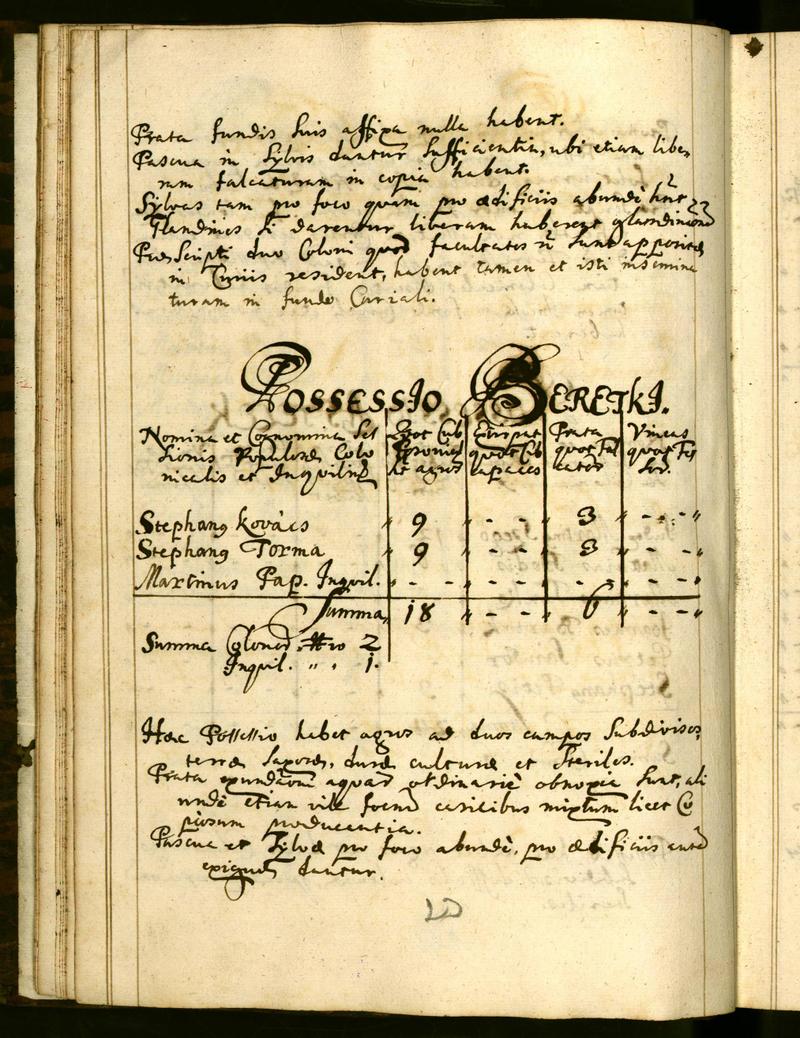 Prata fundis suis affixa nulla habent.
Pascua in Sylvis dantur sufficientia, ubi etiam libe,
ram falcaturam in copia habent.
Sylvas tam pro foco quam pro ædificiis abundè hnt
Glandines si darentur liberam haberent glandinaõnẽ
Præscripti duo Coloni quod facultates ñ sunt appositæ
in Curiis resident, habent tamen et isti insemina
turam in fundo Curiali.
Possessio Beretki.
Nomina et Cognomina Ses
sionis Populorũ Colo
nicalis et Inquilinũ
Quot Cub
agros
Extirpat
quot Cub
capaces
Prata
quot Fal
cator
Vineas
quot Fos
sor.
Stephang Kovács " 9 " - - " 3 " - - "
Stephang Torma " 9 " - - " 3 " - - "
Martinus Pap. Inquil. " - - " - - " - - " - - "
Summa " 18 " - - " 6 " - - "
Summa Colonorũ Nro 2
Inquil. " " 1.
Hæc Possessio habet agros ad duos campos subdivisos,
terræ saxosæ, duræ culturæ et steriles.
Prata exundaõni aquarũ ordinariè obnoxia sunt, ali
undè etiam vile foenũ caricibus mixtum licet Co
piosum producentia.
Pascua et Sylvæ pro foco abundè, pro ædificiis autẽ
exiguè dantur.